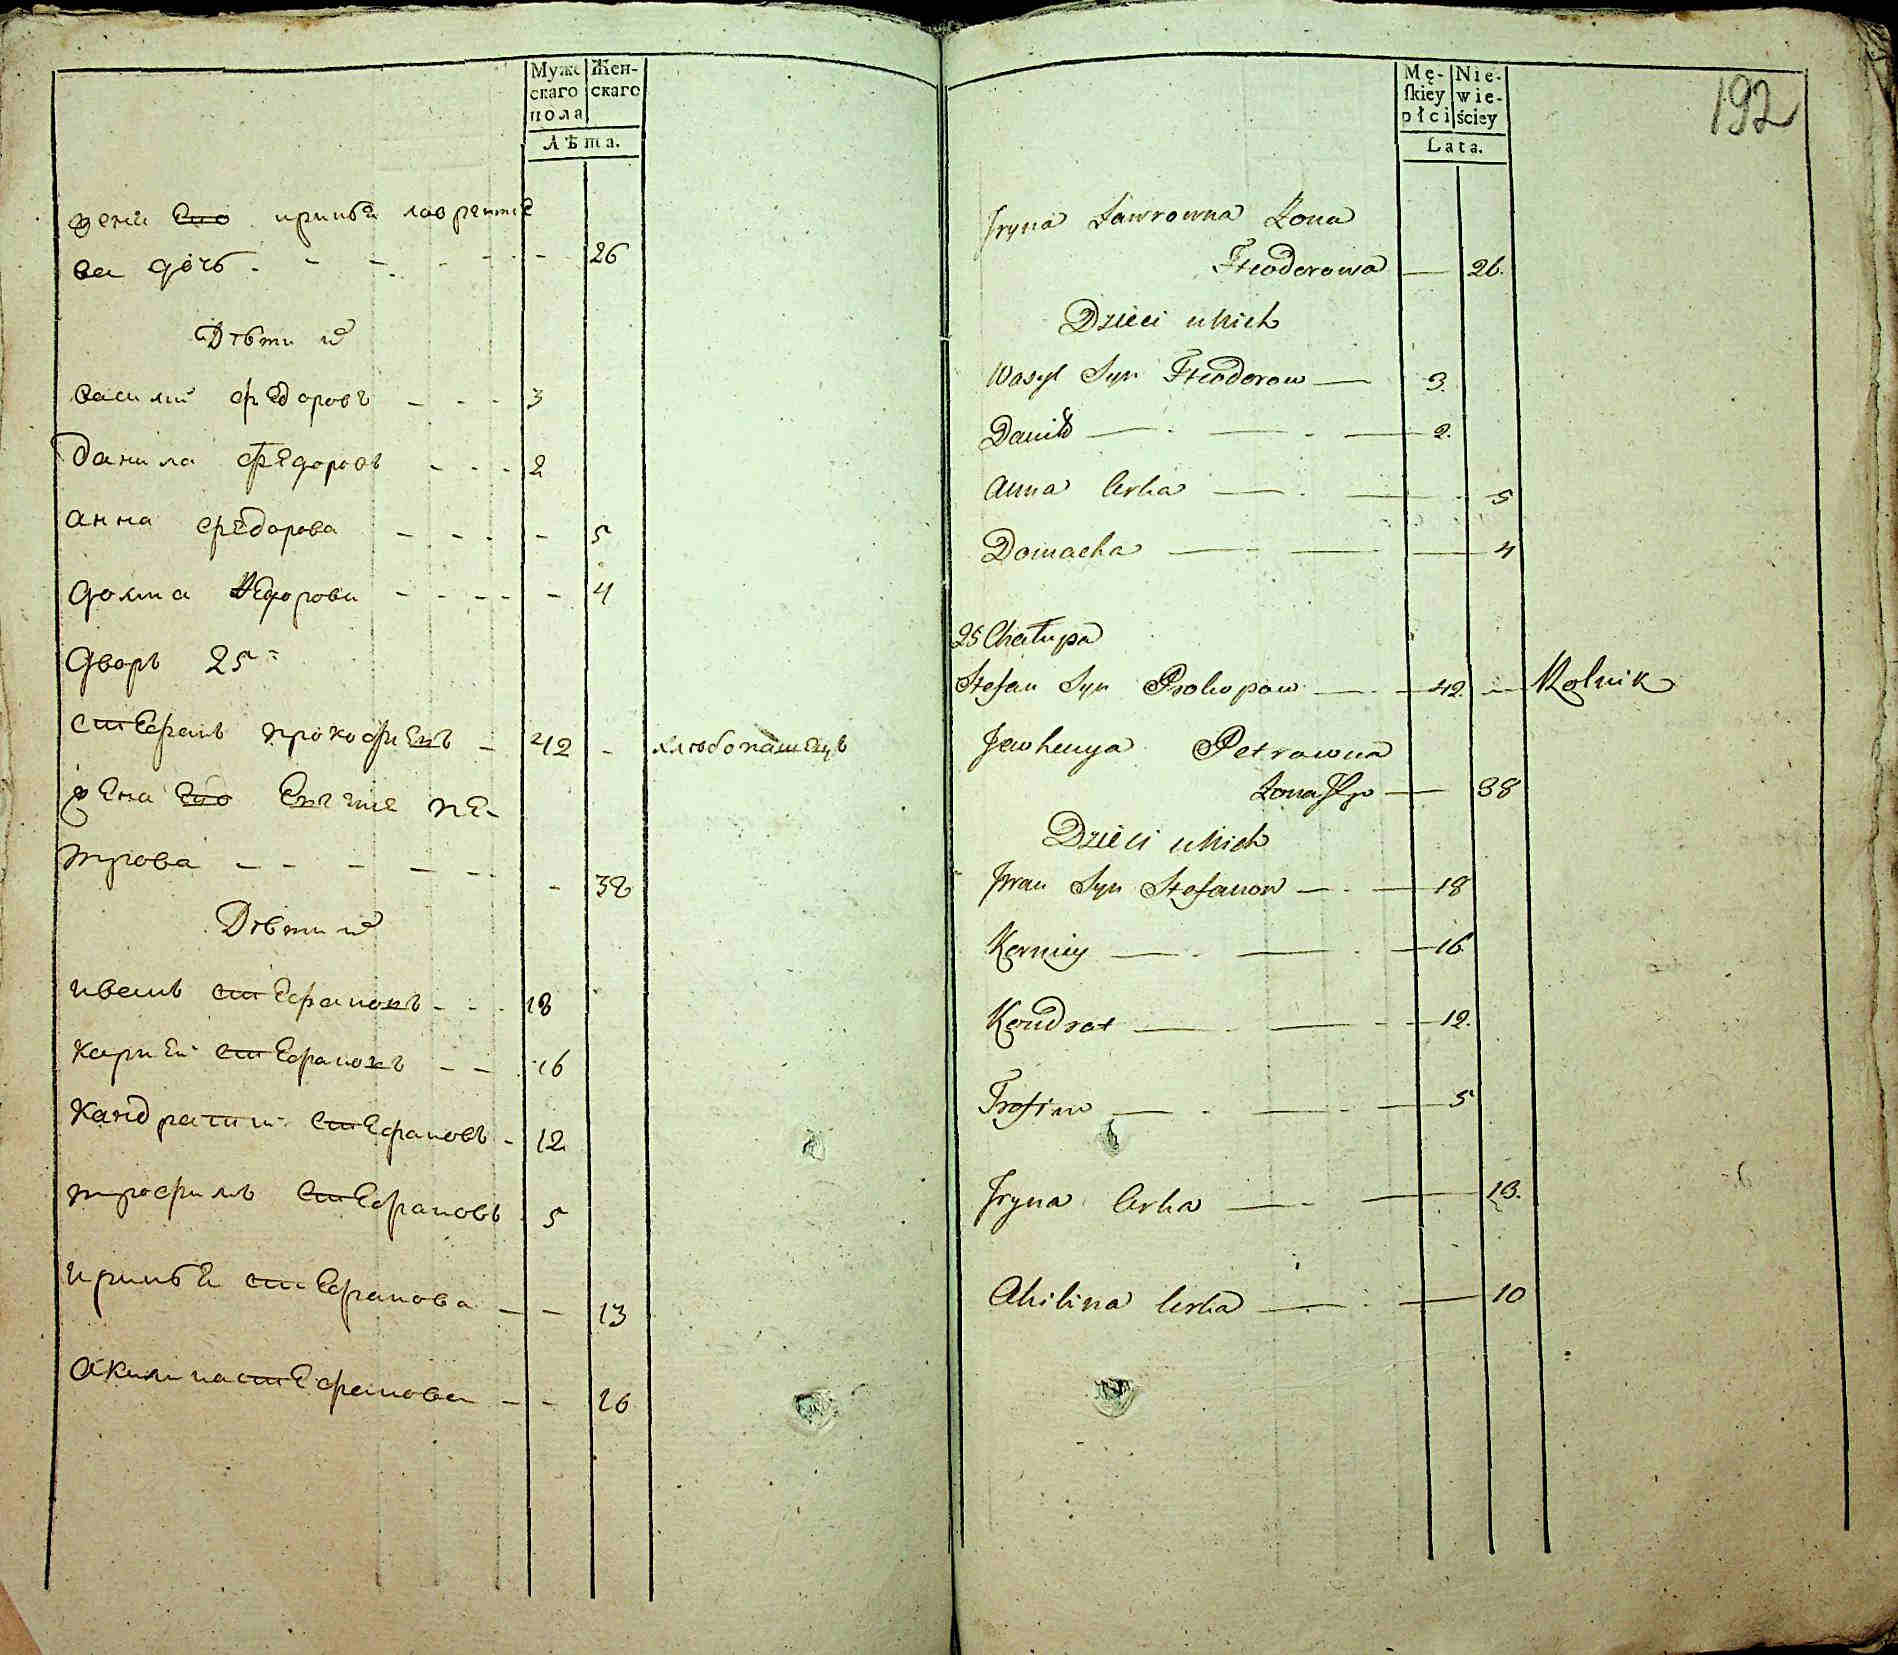 Муже
скаго
пола
Жен-
скаго
Лѣта.
жена Его ирина лаврентье
ва дочь - - - - - - 26
Дѣти их
василий федоровъ - - - 3
данила федоровъ - - - 2
анна федорова - - - - 5
домна федорова - - - - - 4
дворъ 25
стефанъ прокофиевъ - 42 - хлѣбопашецъ
жена Его Евгение пе-
трова - - - - - - 38
Дѣти их
иванъ стефановъ - - - 18
карней стефановъ - - 16
кандратий стефановъ - 12
трофимъ стефановъ 5
ирина стефанова - - 13
акилина стефанова - - 16
Mę-
skiey
płci
Nie-
wie-
ściey
Lata.
192
Jryna Ławrowna Żona
Fteodorowa — 26.
Dzieci u Nich
Wasyl Syn Fteodorow — 3.
Danił — . — . — 2.
Anna Corka — . — . 5
Domacha — . — . — 4
25 Chałupa
Stefan Syn Prokopow — . — 42. — Rolnik
Jewhenya Petrowna
Żona Jego — — 38
Dzieci u Nich
Jwan Syn Stefanow — . — 18
Korniey — . — . — 16
Kondrat — . — . — 12.
Trofim — . — . — 5
Jryna Corka — . — 13.
Akilina Corka — . — 10